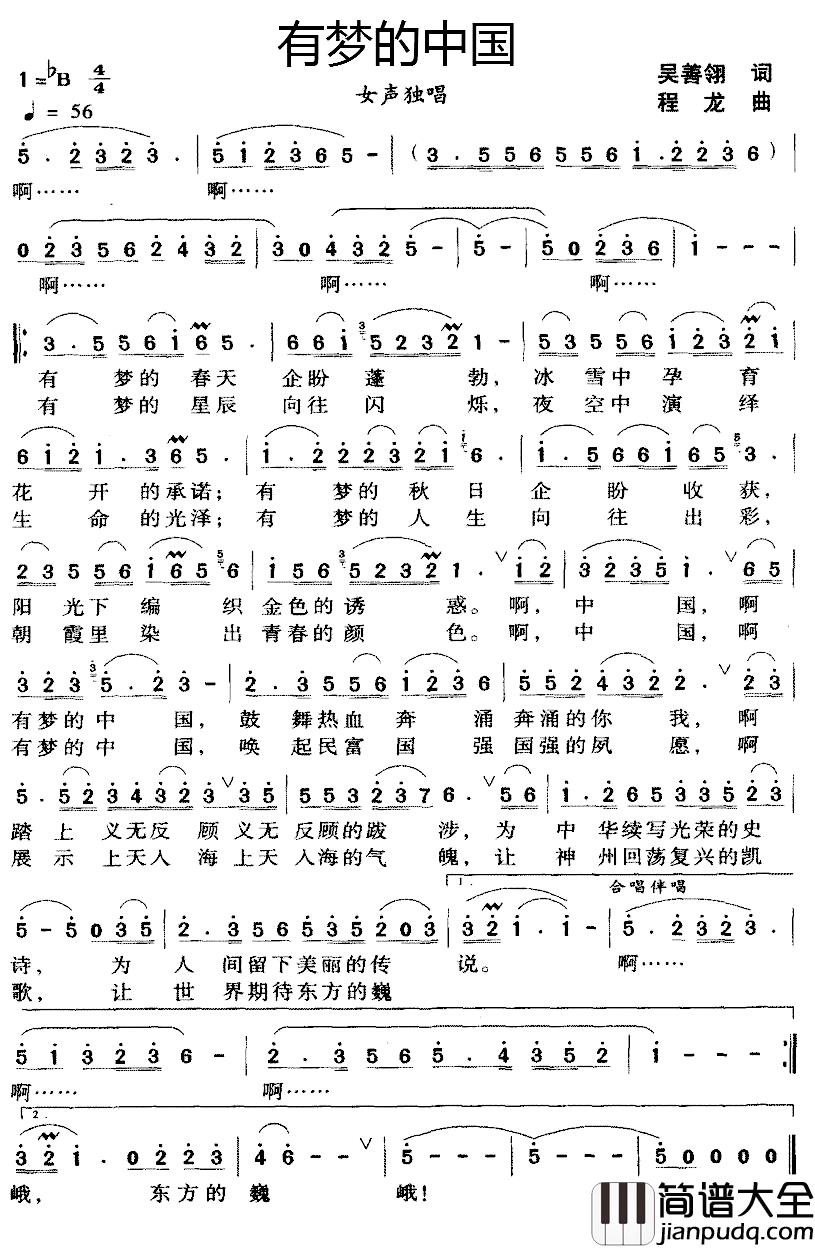 有梦的中国
1=♭B 4/4
女声独唱
吴善翎 词
♩= 56
程 龙 曲
5 . 2 3 2 3 . | 5 1 2 3 6 5 - | ( 3 . 5 5 6 5 5 6 1 . 2 2 3 6 ) |
啊…… 啊……
0 2 3 5 6 2 4 3 2 | 3 0 4 3 2 5 - - | 5 - 5 0 2 3 6 | 1 - - - |
啊…… 啊…… 啊……
3 . 5 5 6 1 6 5 . | 6 6 1 3 5 2 3 2 1 - | 5 3 5 5 6 1 2 3 2 1 |
有 梦的 春天 企盼 蓬 勃，冰 雪中 孕 育
有 梦的 星辰 向往 闪 烁，夜 空中 演 绎
6 1 2 1 . 3 6 5 . | 1 . 2 2 2 3 2 1 1 6 . | 1 . 5 6 6 1 6 5 5 3 . |
花 开 的承诺；有 梦的 秋 日 企 盼 收 获，
生 命 的光泽；有 梦的 人 生 向 往 出 彩，
2 3 5 5 6 1 6 5 5 6 | 1 5 6 3 5 2 3 2 1 . ∨ 1 2 | 3 2 3 5 1 . ∨ 6 5 |
阳 光下 编 织 金色的 诱 惑。啊，中 国，啊
朝 霞里 染 出 青春的 颜 色。啊，中 国，啊
3 2 3 3 5 . 2 3 - | 2 . 3 5 5 6 1 2 3 6 | 5 5 2 4 3 2 2 . ∨ 2 3 |
有梦的 中 国，鼓 舞热血 奔 涌 奔涌的你 我，啊
有梦的 中 国，唤 起民富 国 强 国强的夙 愿，啊
5 . 5 2 3 4 3 2 3 ∨ 3 5 | 5 5 3 2 3 7 6 . ∨ 5 6 | 1 . 2 6 5 3 3 5 2 2 3 |
踏 上 义无反 顾 义无 反顾的跋 涉，为 中 华续写光荣的史
展 示 上天入 海 上天 入海的气 魄，让 神 州回荡复兴的凯
1. 合唱伴唱
5 - 5 0 3 5 | 2 . 3 5 6 5 3 5 2 0 3 | 3 2 1 . 1 - | 5 . 2 3 2 3 . |
诗， 为 人 间留下美丽的传 说。 啊……
歌， 让 世 界期待东方的巍
5 1 3 2 3 6 - | 2 . 3 5 6 5 . 4 3 5 2 | 1 - - - :|
啊…… 啊……
2.
3 2 1 . 0 2 2 3 | 4 6 - - ∨ | 5 - - - | 5 - - - | 5 0 0 0 0 ||
峨， 东方的 巍 峨！
简谱大全
jianpudq.com